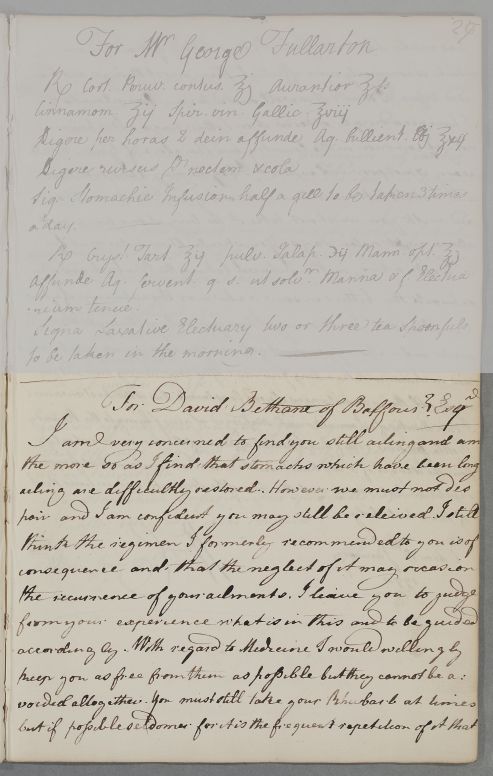 29
For Mr George Fullarton
℞ Cort. Peruv. contus. ℥j Aurantior ℥ſs
Cinnamom. ʒij Spir. vin. Gallic. ℥viij
Digere per horas 2 dein affunde Aq. bullient.
Digere rursus noctem & cola
Sig. Stomachic Infusion half a gill to be taken 3 times
a day.
℞ Crys. Tart. ʒij pulv. Jalap. ℈ij Mann. opt.
affunde Aq. fervent. q. s. ut solvr. Manna & f Electua
-rium tenue.
Signa Laxative Electuary two or three tea spoonfuls
to be taken in the morning.
For David Bethune of Balfour Esqr.
I am very concerned to find you still ailing and am
the more so as I find that stomachs which have been long
ailing are difficultly restored. However we must not des
pair and I am confident you may still be releived. I still
think the regimen I formerly recommended to you is of
consequence and that the neglect of it may occasion
the recurrence of your ailments. I leave you to judge
from your experience what is in this and to be guided
accordingly. With regard to Medicine I would willingly
keep you as free from them as possible but they cannot be a:
voided altogether. You must still take your Rhubarb at times
but if possible seldomer for it is the frequent repetition of it that